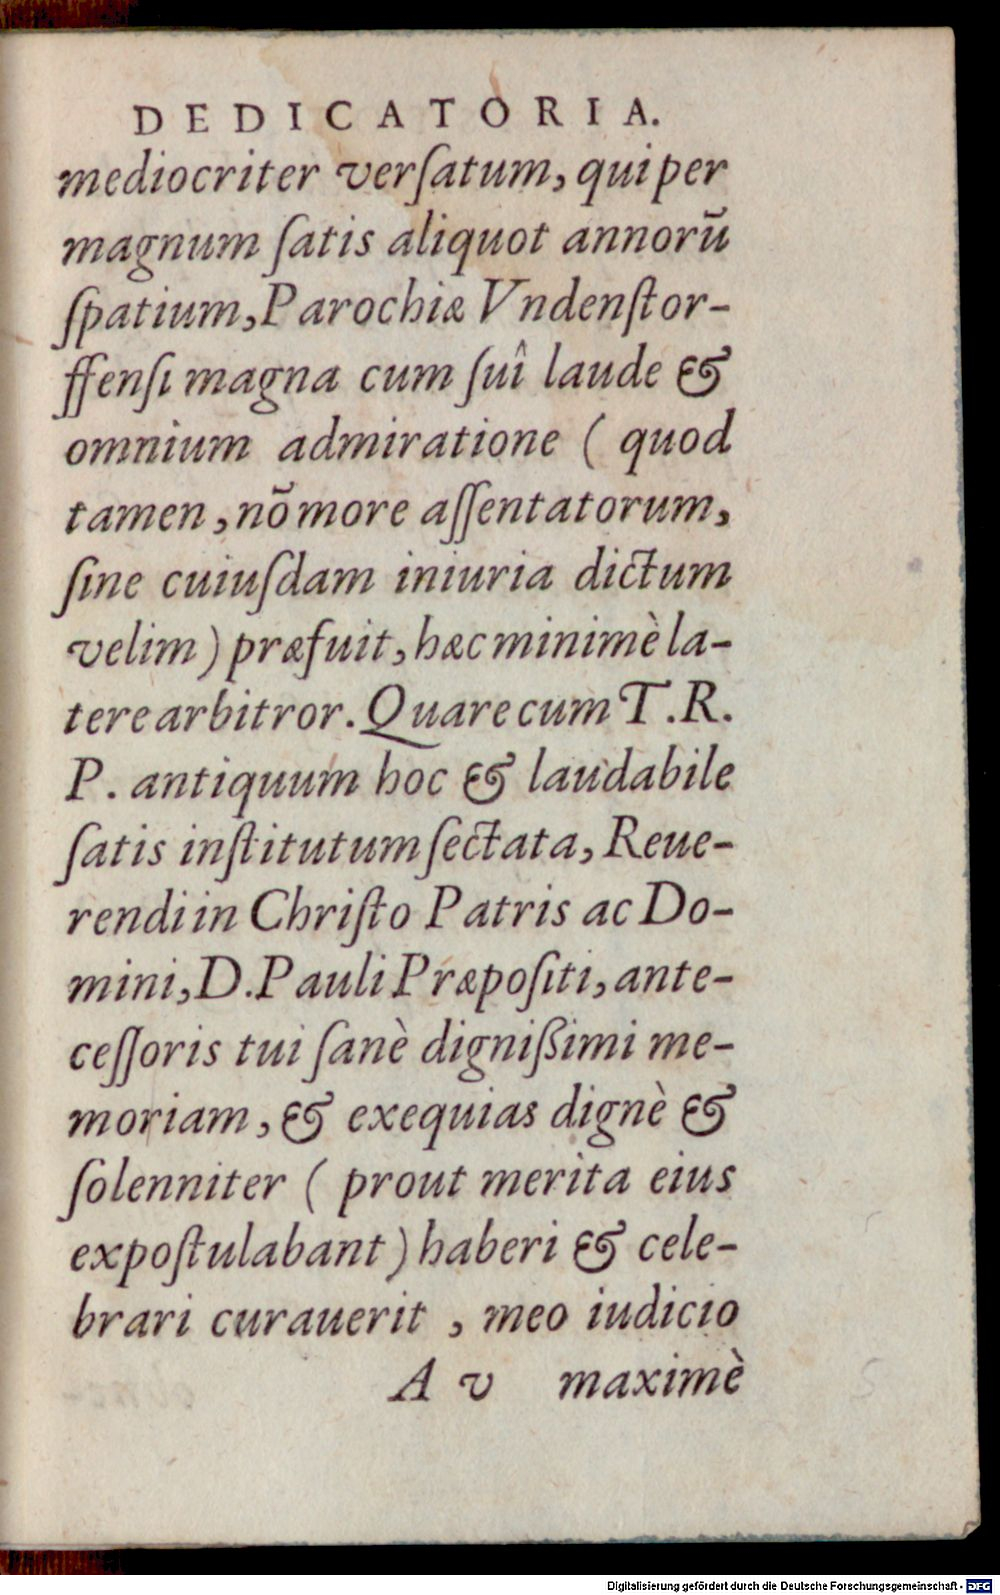 DEDICATORIA.
mediocriter verſatum, qui per
magnum ſatis aliquot annorū
ſpatium, Parochiæ Vndenſtor-
ffenſi magna cum ſuî laude &
omnium admiratione ( quod
tamen, nō more aſſentatorum,
ſine cuiuſdam iniuria dictum
velim) præfuit, hæc minimè la-
tere arbitror. Quare cum T. R.
P. antiquum hoc & laudabile
ſatis inſtitutum ſectata, Reue-
rendi in Chriſto Patris ac Do-
mini, D. Pauli Præpoſiti, ante-
ceſſoris tui ſanè dignißimi me-
moriam, & exequias dignè &
ſolenniter ( prout merita eius
expoſtulabant) haberi & cele-
brari curauerit , meo iudicio
A v maximè
Digitalisierung gefördert durch die Deutsche Forschungsgemeinschaft - DFG